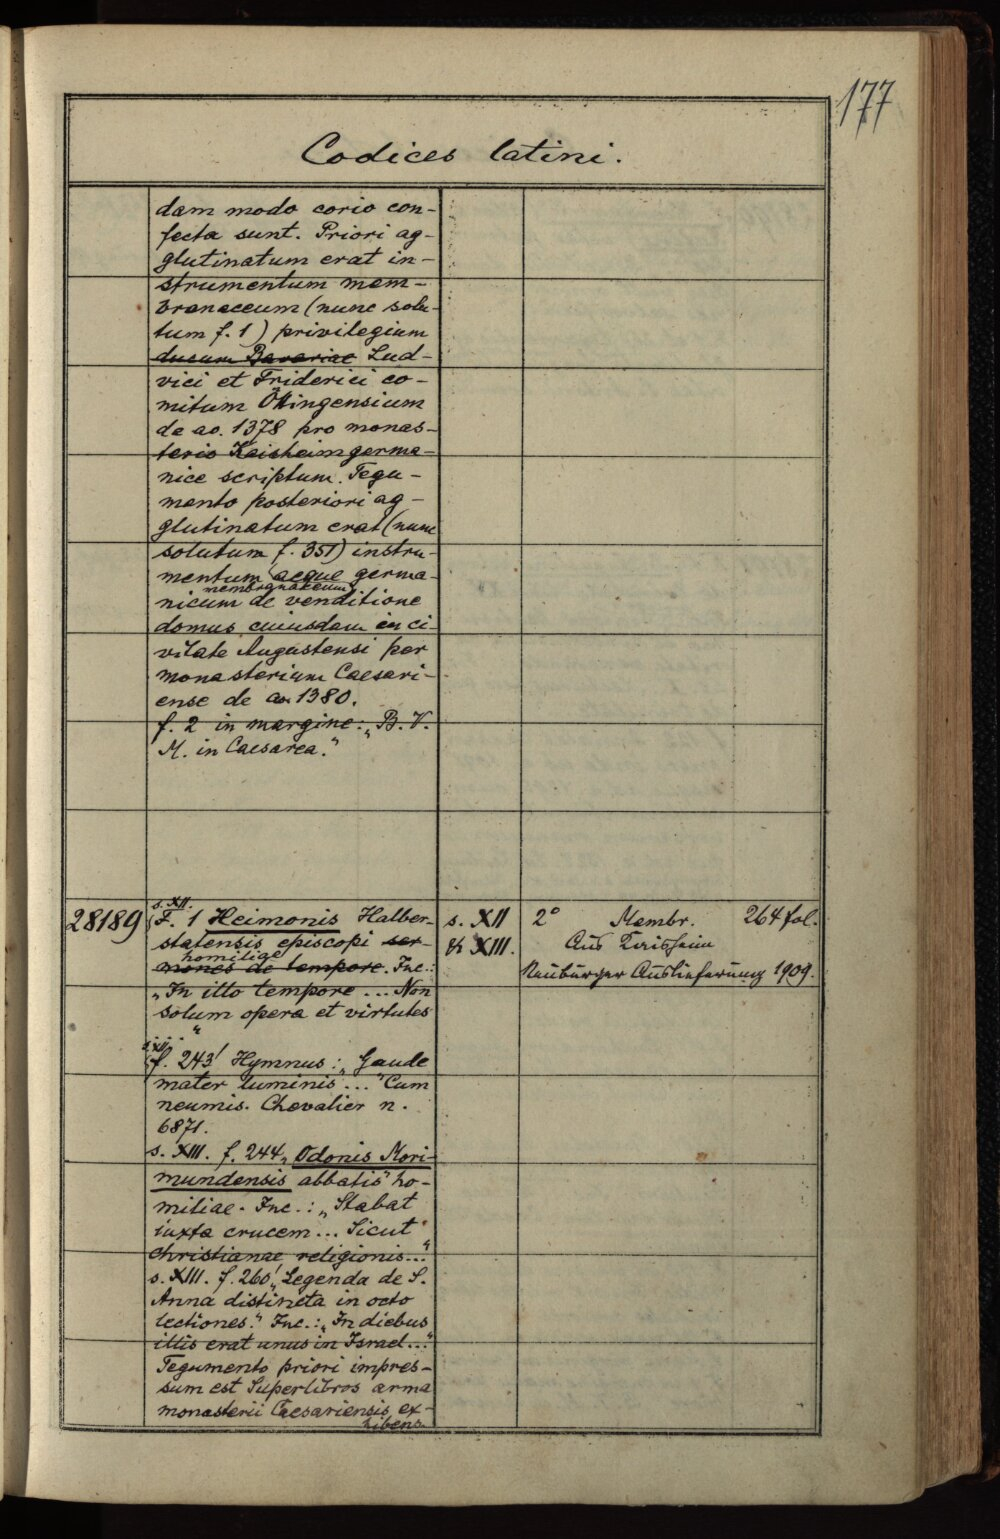 177
Codices latini.
dam modo corio con-
fecta sunt. Priori ag-
glutinatum erat in-
strumentum mem-
branaceum (nunc solu-
tum f. 1) privilegium
ducum Bavariae Lud-
vici et Friderici co-
mitum Ottingensium
de ao. 1378 pro monas-
terio Kaisheim germa-
nice scriptum. Tegu-
mento posteriori ag-
glutinatum erat (nunc
solutum f. 351) instru-
mentum aeque germa-
membranaceum
nicum de venditione
domus cuiusdam in ci-
vitate Augustensi per
monasterium Caesari-
ense de ao. 1380.
f. 2 in margine: „B. V.
M. in Caesarea."
28189
s. XII.
F. 1 Heimonis Halber-
statensis episcopi ser-
homiliae
mones de tempore. Inc.:
„In illo tempore ... Non
solum opera et virtutes
..."
s. XII
f. 243' Hymnus: „Gaude
mater luminis ..." Cum
neumis. Chevalier n.
6871.
s. XIII. f. 244 „Odonis Mori-
mundensis abbatis" ho-
miliae. Inc.: „Stabat
iuxta crucem ... Sicut
christianae religionis..."
s. XIII. f. 260' „Legenda de S.
Anna distincta in octo
lectiones." Inc.: „In diebus
illis erat unus in Israel..."
Tegumento priori impres-
sum est Superlibros arma
monasterii Caesariensis ex-
hibens.
s. XII
& XIII.
2° Membr. 264 fol.
Aus Kaisheim
Neuburger Auslieferung 1909.